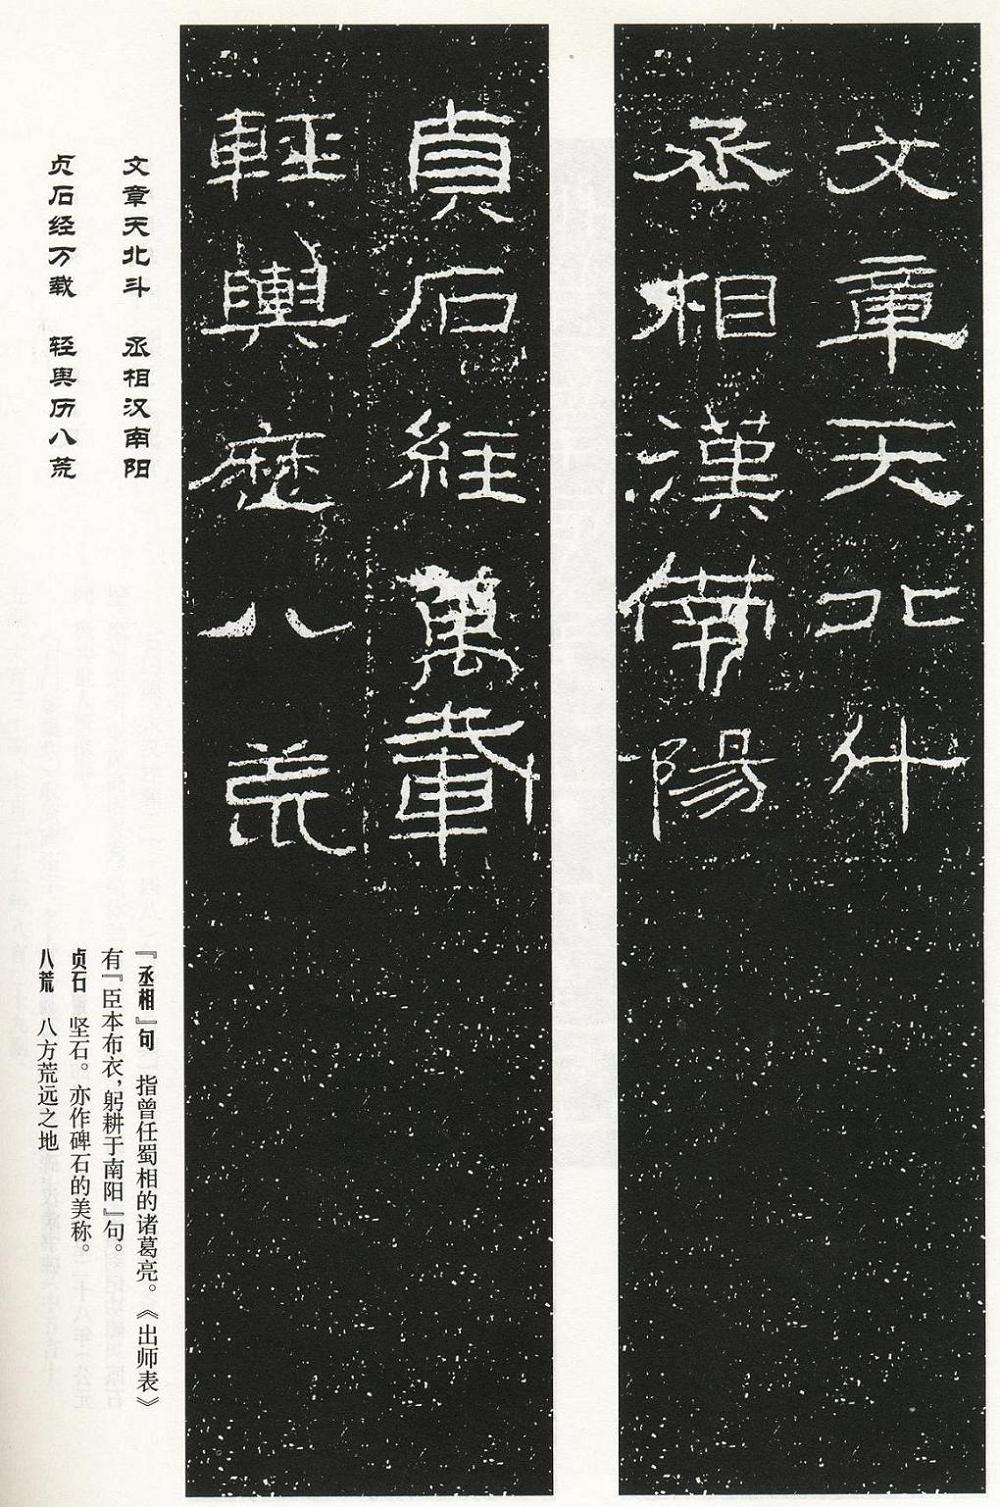 文章天北斗
丞相漢南陽
貞石經萬載
輕輿歷八荒
文章天北斗 丞相汉南阳
贞石经万载 轻舆历八荒
『丞相』句 指曾任蜀相的诸葛亮。《出师表》
有『臣本布衣，躬耕于南阳』句。
贞石 坚石。亦作碑石的美称。
八荒 八方荒远之地